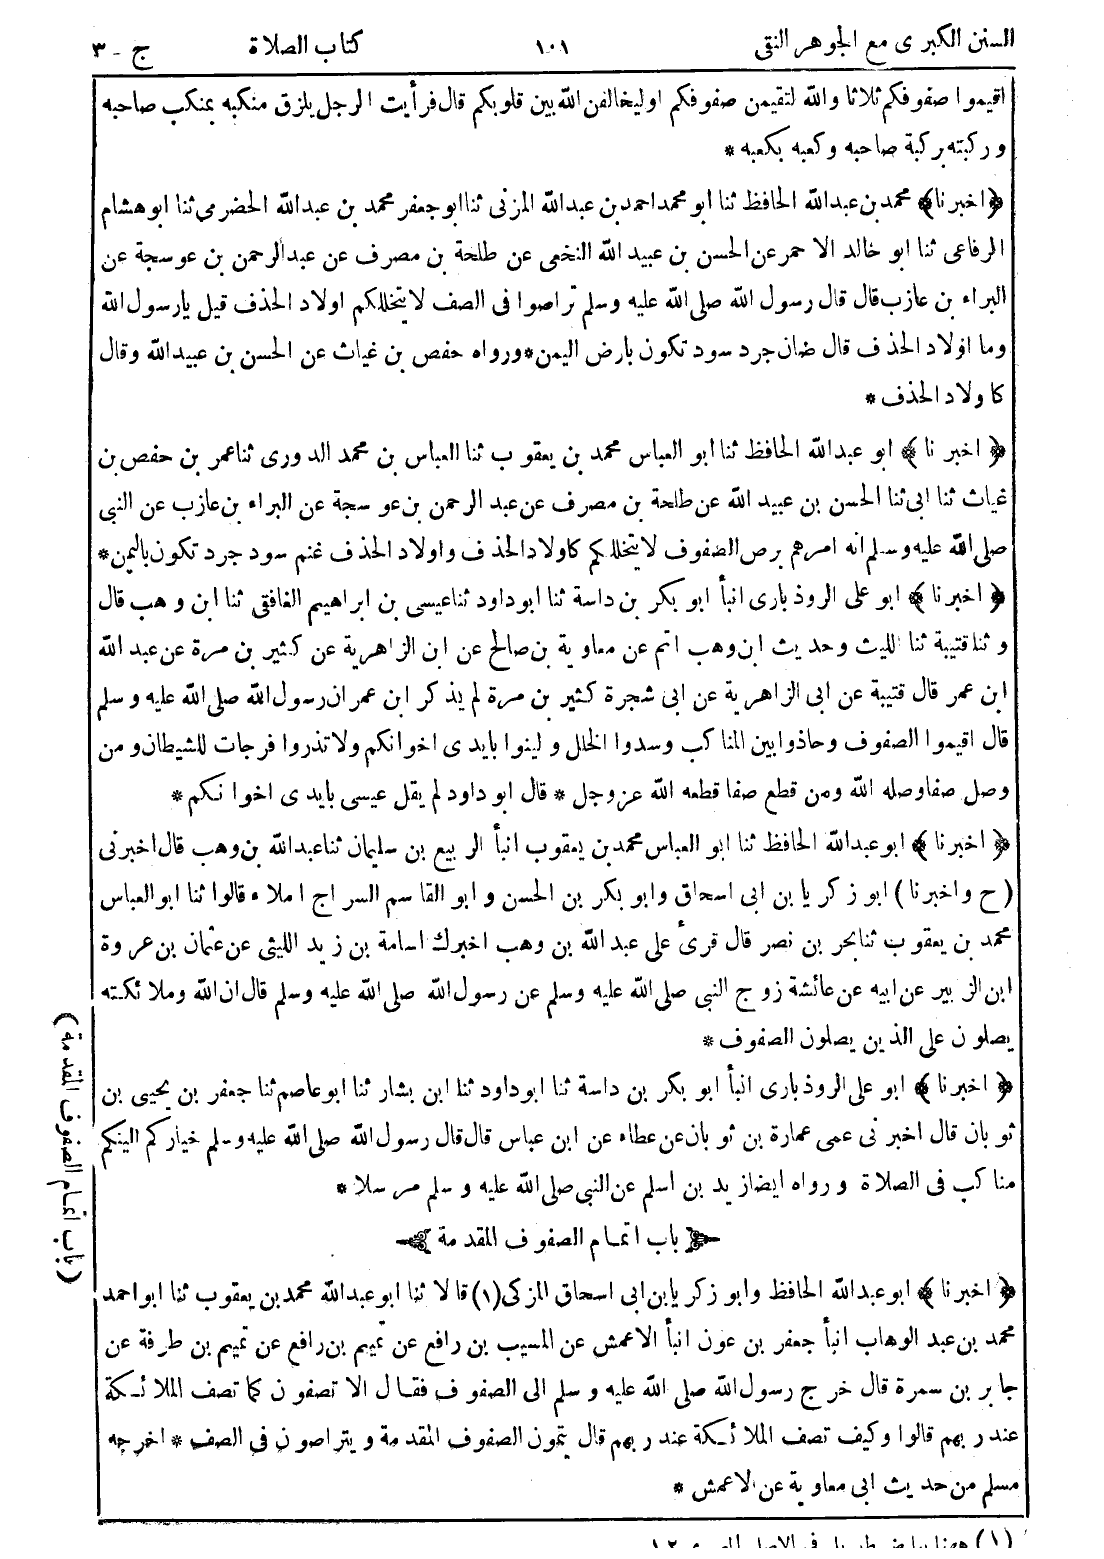 السنن الكبرى مع الجوهر النقى ١٠١ كتاب الصلاة ج - ٣
اقيموا صفوفكم ثلاثا والله لتقيمن صفوفكم اوليخالفن الله بين قلوبكم قال فرأيت الرجل يلزق منكبه بمنكب صاحبه
وركبته بركبة صاحبه وكعبه بكعبه *
﴿اخبرنا﴾ محمد بن عبدالله الحافظ ثنا ابو محمد احمد بن عبدالله المزنى ثنا ابو جعفر محمد بن عبدالله الحضرمى ثنا ابوهشام
الرفاعى ثنا ابو خالد الاحمر عن الحسن بن عبيد الله النخعى عن طلحة بن مصرف عن عبدالرحمن بن عوسجة عن
البراء بن عازب قال قال رسول الله صلى الله عليه وسلم تراصوا فى الصف لا يتخللكم اولاد الحذف قيل يارسول الله
وما اولاد الحذف قال ضان جرد سود تكون بارض اليمن * ورواه حفص بن غياث عن الحسن بن عبيدالله وقال
كاولاد الحذف *
﴿اخبرنا﴾ ابو عبدالله الحافظ ثنا ابو العباس محمد بن يعقوب ثنا العباس بن محمد الدورى ثنا عمر بن حفص بن
غياث ثنا ابى ثنا الحسن بن عبيد الله عن طلحة بن مصرف عن عبد الرحمن بن عوسجة عن البراء بن عازب عن النبى
صلى الله عليه وسلم انه امرهم برص الصفوف لا يتخللكم كاولاد الحذف واولاد الحذف غنم سود جرد تكون باليمن *
﴿اخبرنا﴾ ابو على الروذبارى انبأ ابو بكر بن داسة ثنا ابوداود ثنا عيسى بن ابراهيم الغافقى ثنا ابن وهب قال
وثنا قتيبة ثنا الليث وحديث ابن وهب اتم عن معاوية بن صالح عن ابى الزاهرية عن كثير بن مرة عن عبد الله
ابن عمر قال قتيبة عن ابى الزاهرية عن ابى شجرة كثير بن مرة لم يذكر ابن عمر ان رسول الله صلى الله عليه وسلم
قال اقيموا الصفوف وحاذوا بين المناكب وسدوا الخلل ولينوا بايدى اخوانكم ولا تذروا فرجات للشيطان ومن
وصل صفا وصله الله ومن قطع صفا قطعه الله عزوجل * قال ابو داود لم يقل عيسى بايدى اخوانكم *
﴿اخبرنا﴾ ابو عبدالله الحافظ ثنا ابو العباس محمد بن يعقوب انبأ الربيع بن سليمان ثنا عبدالله بن وهب قال اخبرنى
(ح واخبرنا) ابو زكريا بن ابى اسحاق وابو بكر بن الحسن وابو القاسم السراج املاء قالوا ثنا ابو العباس
محمد بن يعقوب ثنا بحر بن نصر قال قرئ على عبد الله بن وهب اخبرك اسامة بن زيد الليثى عن عثمان بن عروة
ابن الزبير عن ابيه عن عائشة زوج النبى صلى الله عليه وسلم عن رسول الله صلى الله عليه وسلم قال ان الله وملائكته
يصلون على الذين يصلون الصفوف *
﴿اخبرنا﴾ ابو على الروذبارى انبأ ابو بكر بن داسة ثنا ابوداود ثنا ابن بشار ثنا ابو عاصم ثنا جعفر بن يحيى بن
ثوبان قال اخبرنى عمى عمارة بن ثوبان عن عطاء عن ابن عباس قال قال رسول الله صلى الله عليه وسلم خياركم الينكم
مناكب فى الصلاة ورواه ايضا زيد بن اسلم عن النبى صلى الله عليه وسلم مرسلا *
باب اتمام الصفوف المقدمة
(باب اتمام الصفوف المقدمة)
﴿اخبرنا﴾ ابو عبدالله الحافظ وابو زكريا بن ابى اسحاق المزكى (١) قالا ثنا ابو عبدالله محمد بن يعقوب ثنا ابو احمد
محمد بن عبد الوهاب انبأ جعفر بن عون انبأ الاعمش عن المسيب بن رافع عن تميم بن رافع عن تميم بن طرفة عن
جابر بن سمرة قال خرج رسول الله صلى الله عليه وسلم الى الصفوف فقال الا تصفون كما تصف الملائكة
عند ربهم قالوا وكيف تصف الملائكة عند ربهم قال يتمون الصفوف المقدمة ويتراصون فى الصف * اخرجه
مسلم من حديث ابى معاوية عن الاعمش *
(١)